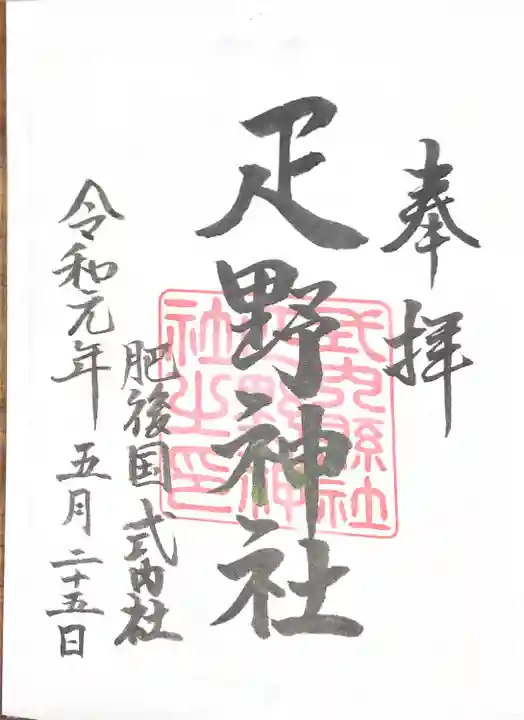 奉拝
疋野神社
式内縣社
疋野神
社之印
肥後国 式内社
令和元年 五月二十五日